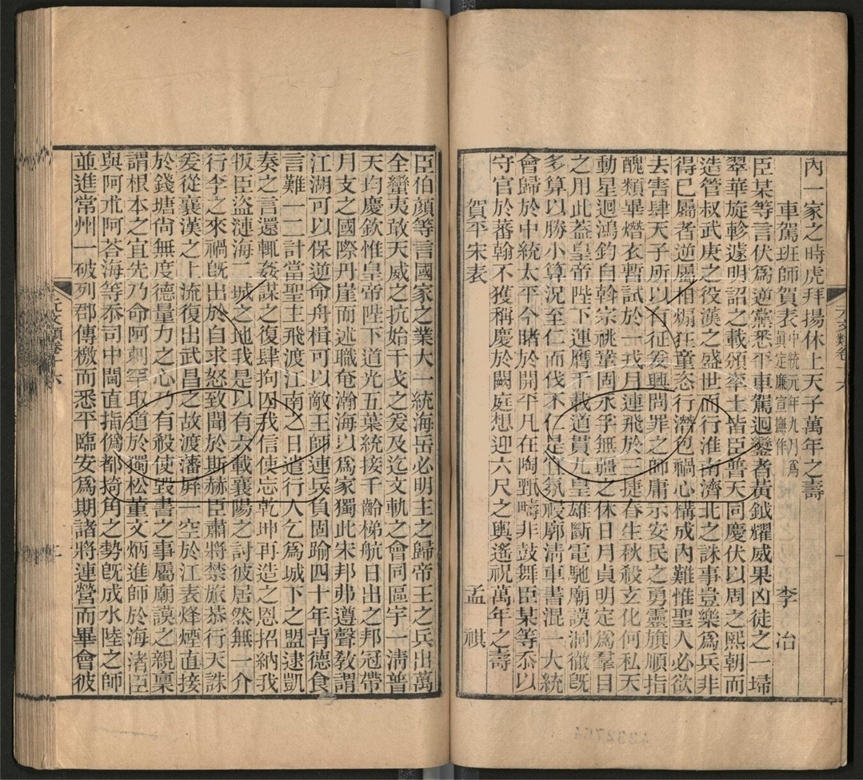 內一家之時虎拜揚休上天子萬年之壽
車駕班師賀表中統元年九月爲真定廉宣撫作 李冶
臣某等言伏爲逆黨悉平車駕迴鑾者黃鉞耀威果凶徒之一埽
翠華旋軫遽明詔之載頒率土皆臣普天同慶伏以周之熙朝而
造管叔武庚之役漢之盛世而行淮南濟北之誅事豈樂爲兵非
得已屬者逆屬相煽狂童恣行潛包禍心構成內難惟聖人必欲
去害肆天子所以有征爰興問罪之師庸示安民之勇靈旗順指
醜類畢熸衣暫試於一戎月連飛於三捷春生秋殺玄化何私天
動星迴鴻鈞自斡宗祧鞏固永孚無疆之休日月貞明定爲羣目
之用此蓋皇帝陛下運膺千載道貫九皇雄斷電馳廟謨洞徹旣
多算以勝小算况至仁而伐不仁是宜氛祲廓淸車書混一大統
會歸於中統太平今睹於開平凡在陶甄疇非鼓舞臣某等忝以
守官於蕃翰不獲稱慶於闕庭想迎六尺之輿遙祝萬年之壽
賀平宋表 孟祺
臣伯顏等言國家之業大一統海岳必明主之歸帝王之兵出萬
全蠻夷敢天威之抗始干戈之爰及迄文軌之會同區宇一淸普
天均慶欽惟皇帝陛下道光五葉統接千齡梯航日出之邦冠帶
月支之國際丹崖而述職奄瀚海以爲家獨此宋邦弗遵聲敎謂
江湖可以保逆命舟楫可以敵王師連兵負固踰四十年背德食
言難一二計當聖主飛渡江南之日遣行人乞爲城下之盟逮凱
奏之言還輒姦謀之復肆拘囚我信使忘乾坤再造之恩招納我
叛臣盜漣海二城之地我是以有六載襄陽之討彼居然無一介
行李之來禍旣出於自求怒致聞於斯赫臣肅將禁旅恭行天誅
爰從襄漢之上流復出武昌之故渡藩屏一空於江表烽煙直接
於錢塘尙無度德量力之心乃有殺使毀書之事屬廟謨之親稟
謂根本之宜先乃命阿剌罕取道於獨松董文炳進師於海渚臣
與阿朮阿荅海等忝司中閫直指僞都掎角之勢旣成水陸之師
並進常州一破列郡傳檄而悉平臨安爲期諸將連營而畢會彼